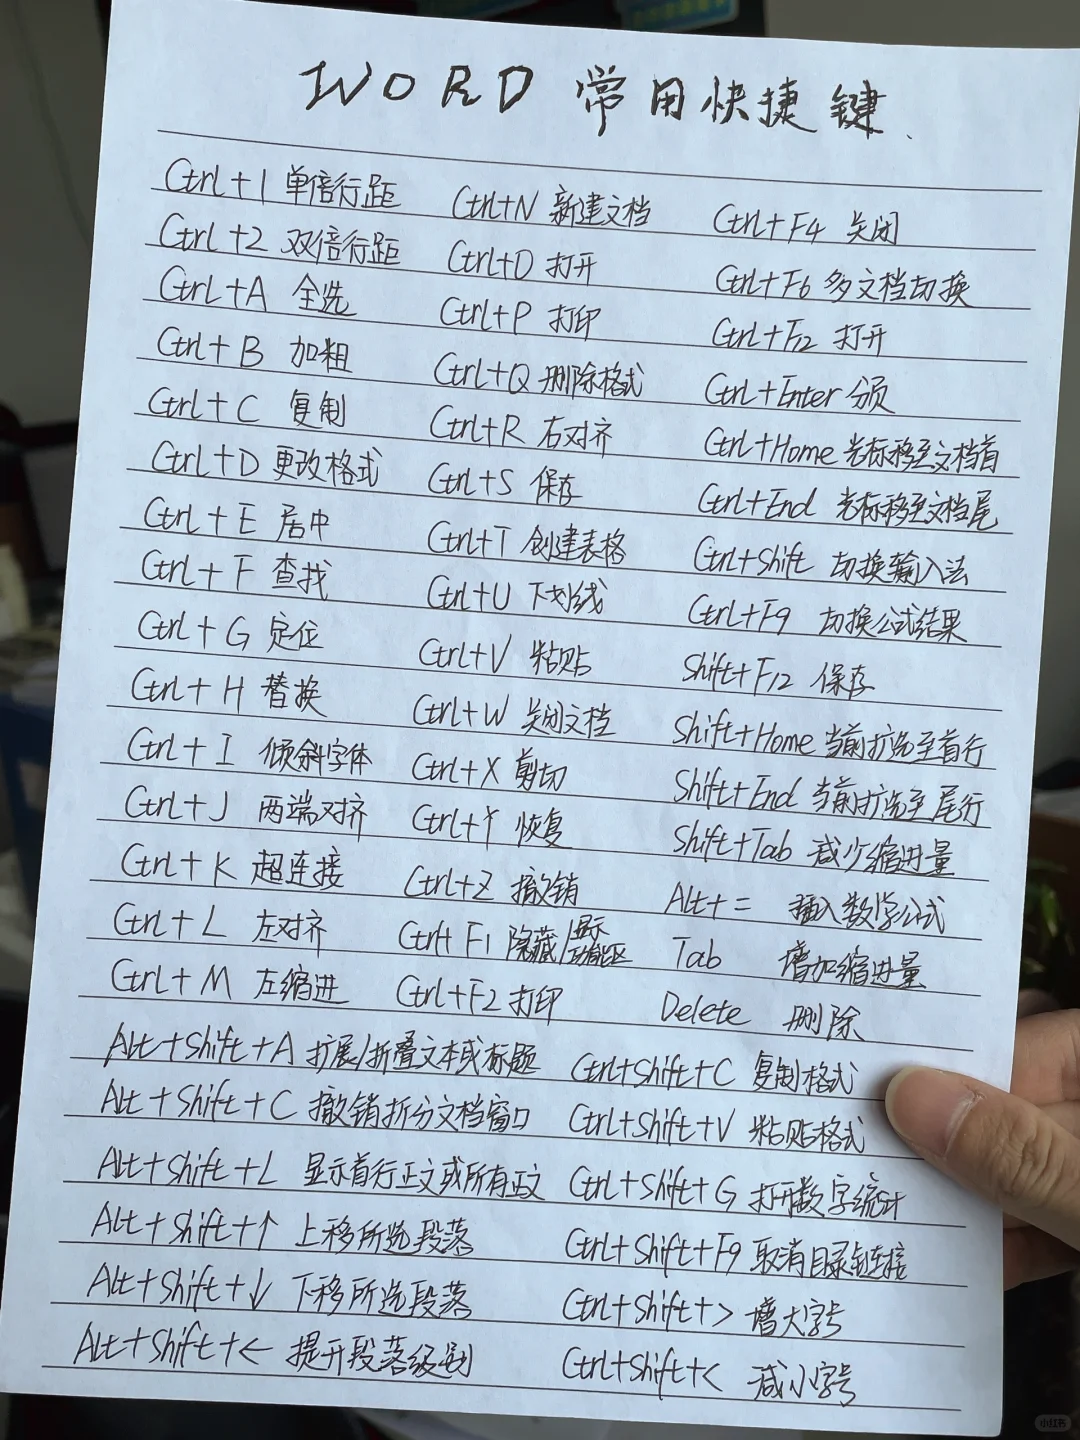 WORD 常用快捷键
Ctrl+1 单倍行距 Ctrl+N 新建文档 Ctrl+F4 关闭
Ctrl+2 双倍行距 Ctrl+O 打开 Ctrl+F6 多文档切换
Ctrl+A 全选 Ctrl+P 打印 Ctrl+F12 打开
Ctrl+B 加粗 Ctrl+Q 删除格式 Ctrl+Enter 分页
Ctrl+C 复制 Ctrl+R 右对齐 Ctrl+Home 光标移至文档首
Ctrl+D 更改格式 Ctrl+S 保存 Ctrl+End 光标移至文档尾
Ctrl+E 居中 Ctrl+T 创建表格 Ctrl+Shift 切换输入法
Ctrl+F 查找 Ctrl+U 下划线 Ctrl+F9 切换公式结果
Ctrl+G 定位 Ctrl+V 粘贴 Shift+F12 保存
Ctrl+H 替换 Ctrl+W 关闭文档 Shift+Home 当前扩选至首行
Ctrl+I 倾斜字体 Ctrl+X 剪切 Shift+End 当前扩选至尾行
Ctrl+J 两端对齐 Ctrl+Y 恢复 Shift+Tab 减少缩进量
Ctrl+K 超连接 Ctrl+Z 撤销 Alt+= 插入数学公式
Ctrl+L 左对齐 Ctrl+F1 隐藏/显示功能区 Tab 增加缩进量
Ctrl+M 左缩进 Ctrl+F2 打印 Delete 删除
Alt+Shift+A 扩展/折叠文本或标题 Ctrl+Shift+C 复制格式
Alt+Shift+C 撤销拆分文档窗口 Ctrl+Shift+V 粘贴格式
Alt+Shift+L 显示首行正文或所有正文 Ctrl+Shift+G 打开数字统计
Alt+Shift+↑ 上移所选段落 Ctrl+Shift+F9 取消目录链接
Alt+Shift+↓ 下移所选段落 Ctrl+Shift+> 增大字号
Alt+Shift+← 提升段落级别 Ctrl+Shift+< 减小字号